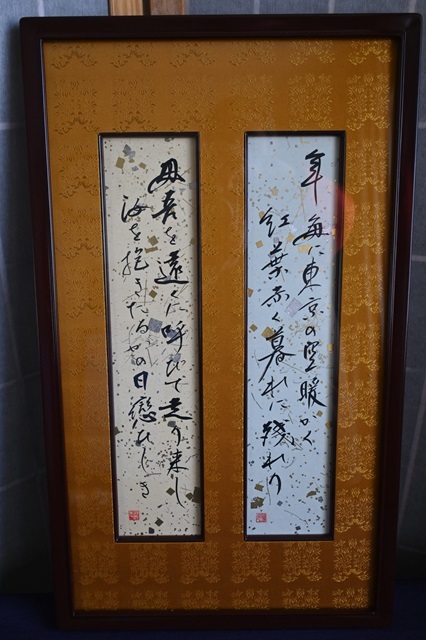 年毎に東京の暖かく
紅葉赤く暮れに殘れり
母吾を遠くに呼びて走り来し
汝を抱きたるかの日戀ひしき